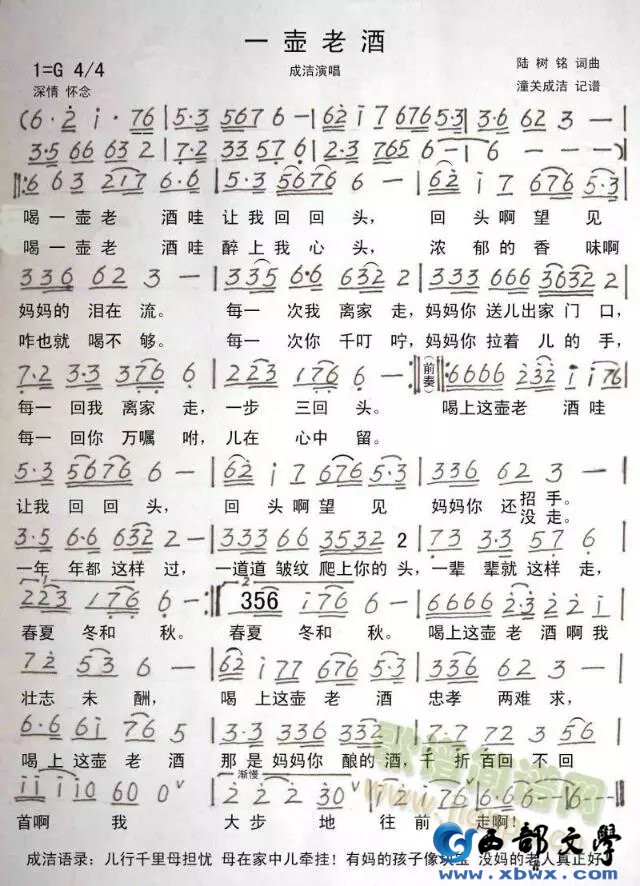 一壶老酒
1=G 4/4
成洁演唱
陆树铭 词曲
深情 怀念
潼关成洁 记谱
(6·2 i·76 | 5·3 5676 | 6i2i 7676 5·3 | 3·6 62 3 — |
3·5 66 63 2 | 7·2 33 57 6 | 2·3 765 6 — | 6 — — —)
6 63 217 6·6 | 5·3 5676 6 — | 62 i7 676 5·3 |
喝一壶老 酒哇 让我回回头, 回头啊望 见
喝一壶老 酒哇 醉上我 心头, 浓 郁的香 味啊
336 62 3 — | 223 55 6·6 6 | 333 666 3632 2 |
妈妈的 泪在流。 每一 次我 离家 走,妈妈你 送儿出家 门口,
咋也就 喝不 够。 每一 次你 千叮 咛,妈妈你 拉着 儿的 手,
7·2 3·3 376 6 | 223 176 6 — (前奏) 6666 232 i i76 |
每一 回我 离家 走,一步 三回 头。 喝上这壶老 酒哇
每一 回你 万嘱 咐,儿在 心中 留。
5·3 5676 6 — | 62 i7 676 5·3 | 336 62 3 — |
让我 回 回 头, 回 头啊望 见 妈妈你 还招 手。
没走。
3·5 6·6 632 2 | 333 66 3532 2 | 733 33 57 6 |
一年 年都 这样 过, 一道道 皱纹 爬上你的 头,一辈 辈就 这样 走,
1 2
223 176 6 — 356 i76 6 — | 6666 2·3 2·2 |
春夏 冬和 秋。 春夏 冬和 秋。 喝上这壶 老 酒啊我
72 53 6 — | 62 i77 676 5·3 | 66 66 5 3 |
壮志 未 酬, 喝 上这壶 老 酒 忠孝 两难 求,
6·6 6i 76 5 | 3·3 336 336 3 | 7·7 72 3 56 |
喝 上 这壶 老 酒 那 是 妈妈你 酿的 酒,千 折 百回 不 回
渐慢
ii ii 0 60 0 | 2 2 2 30 | 2i 76 6·6 6 — | 6 — — |
首啊 我 大步 地 往前 走啊!
成洁语录: 儿行千里母担忧 母在家中儿牵挂! 有妈的孩子像块宝 没妈的老人真正好
西部文學
www.xbwx.com